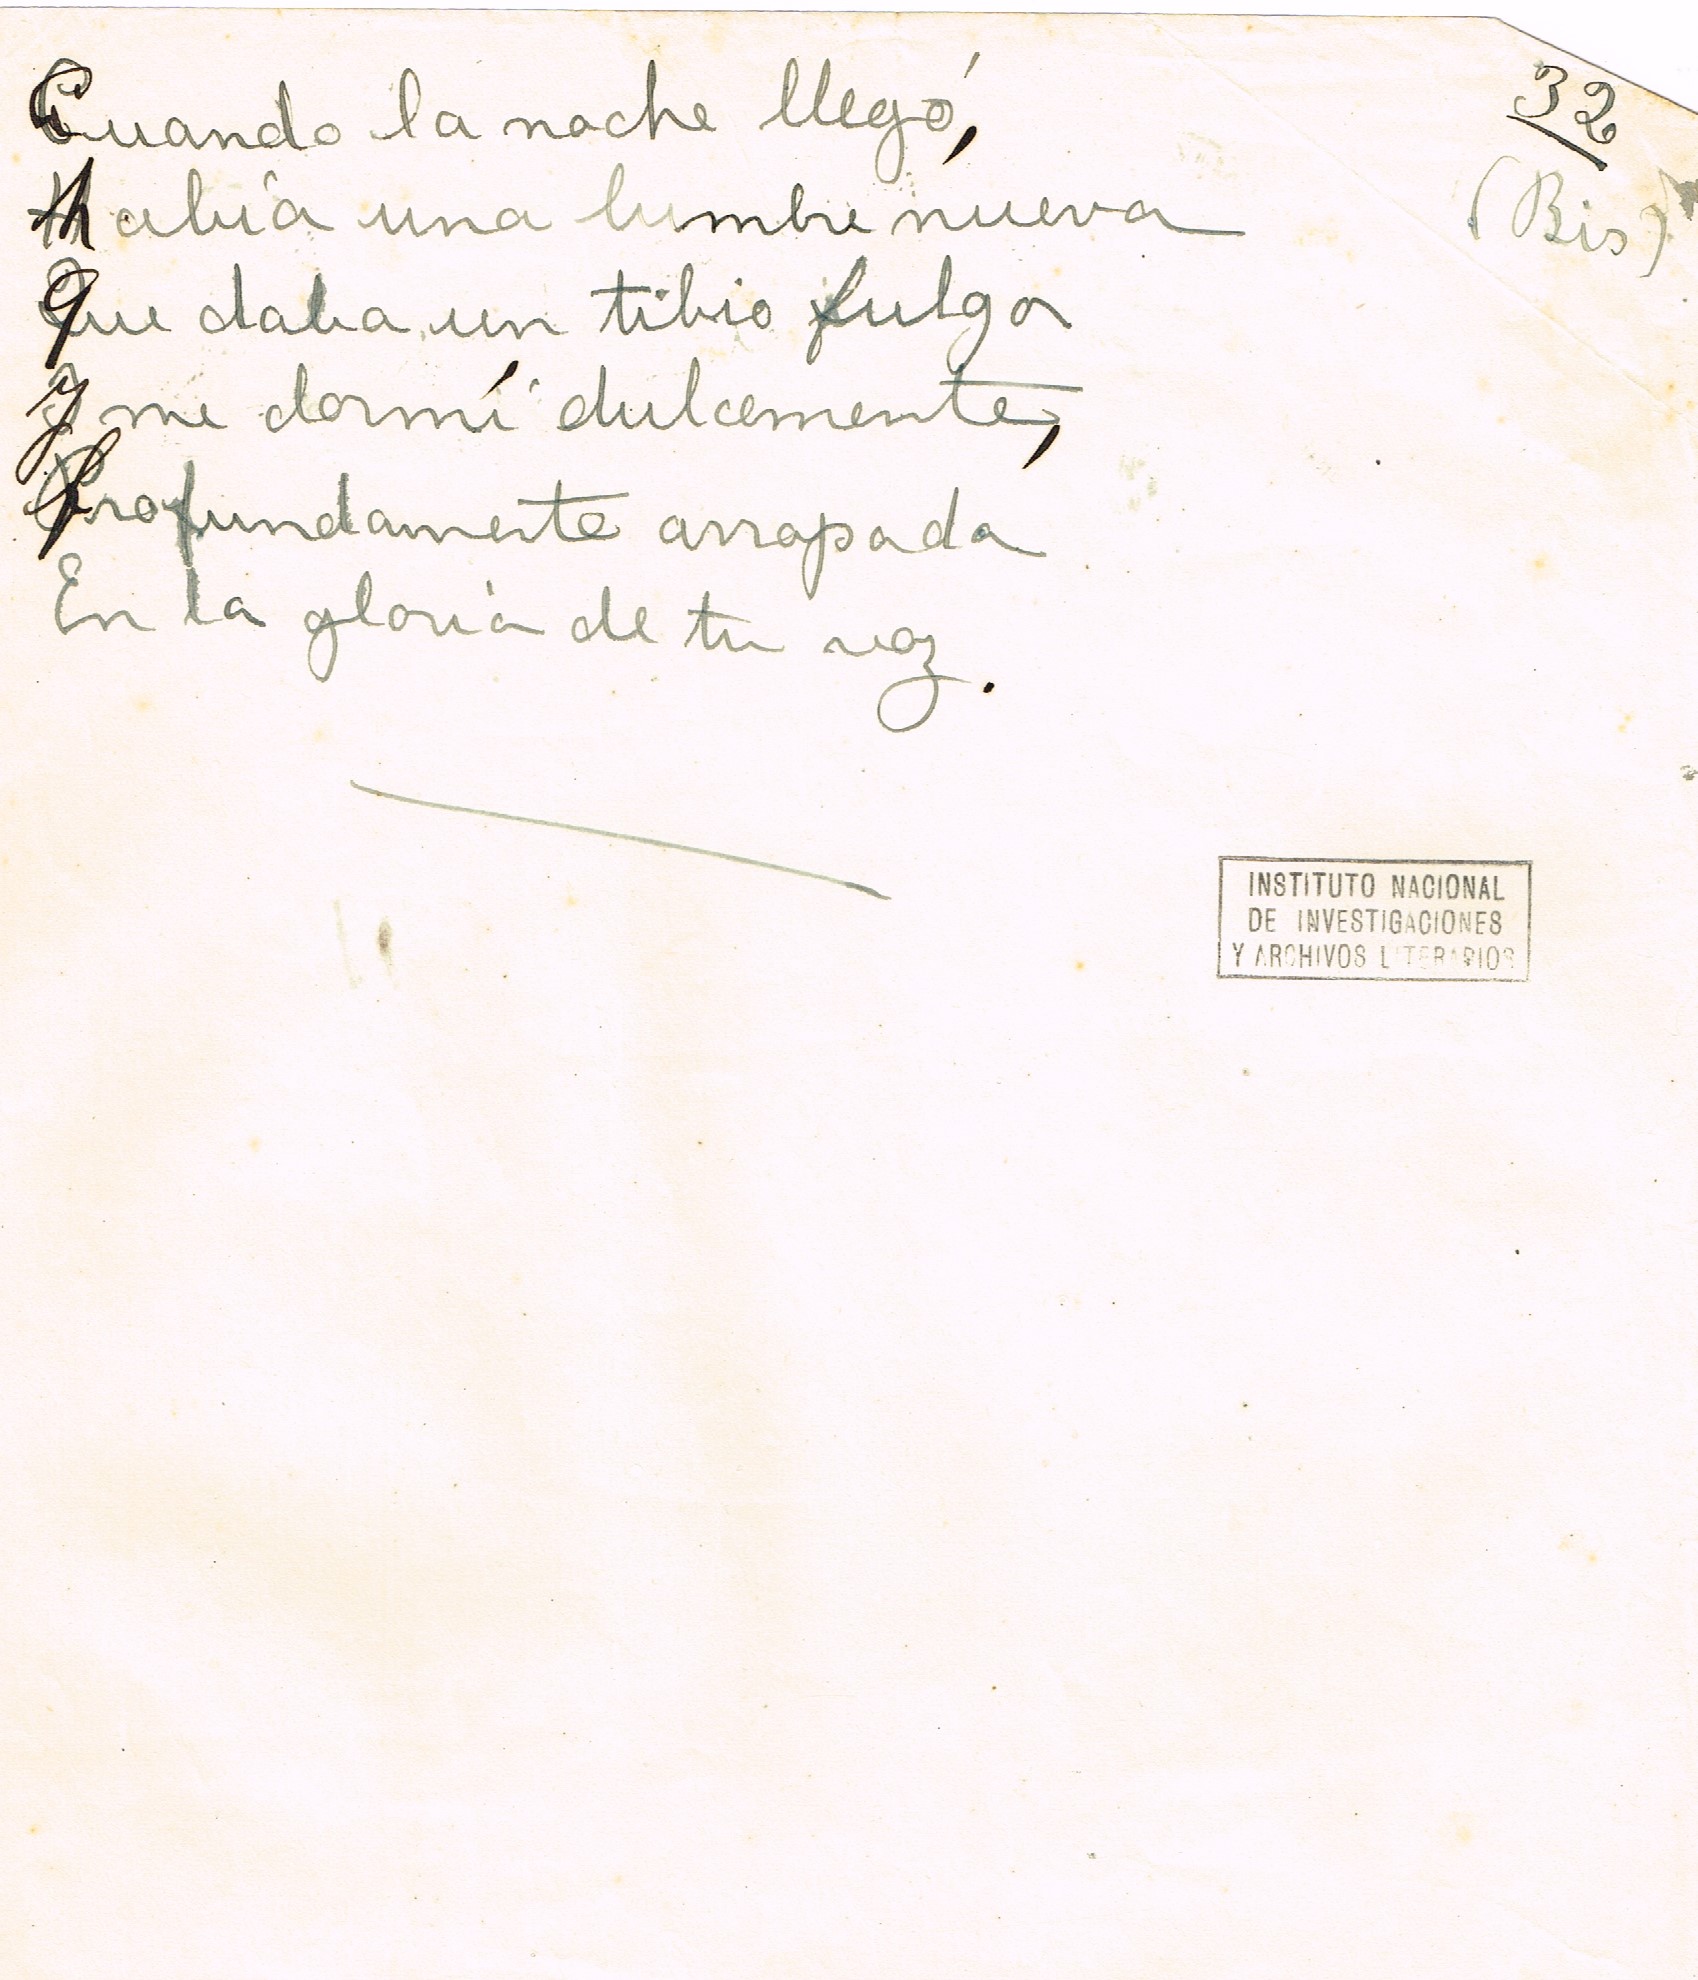 32
(Bis)
Cuando la noche llegó,
había una lumbre nueva
que daba un tibio fulgor
y me dormí dulcemente,
profundamente arropada
En la gloria de tu voz.
INSTITUTO NACIONAL
DE INVESTIGACIONES
Y ARCHIVOS LITERARIOS